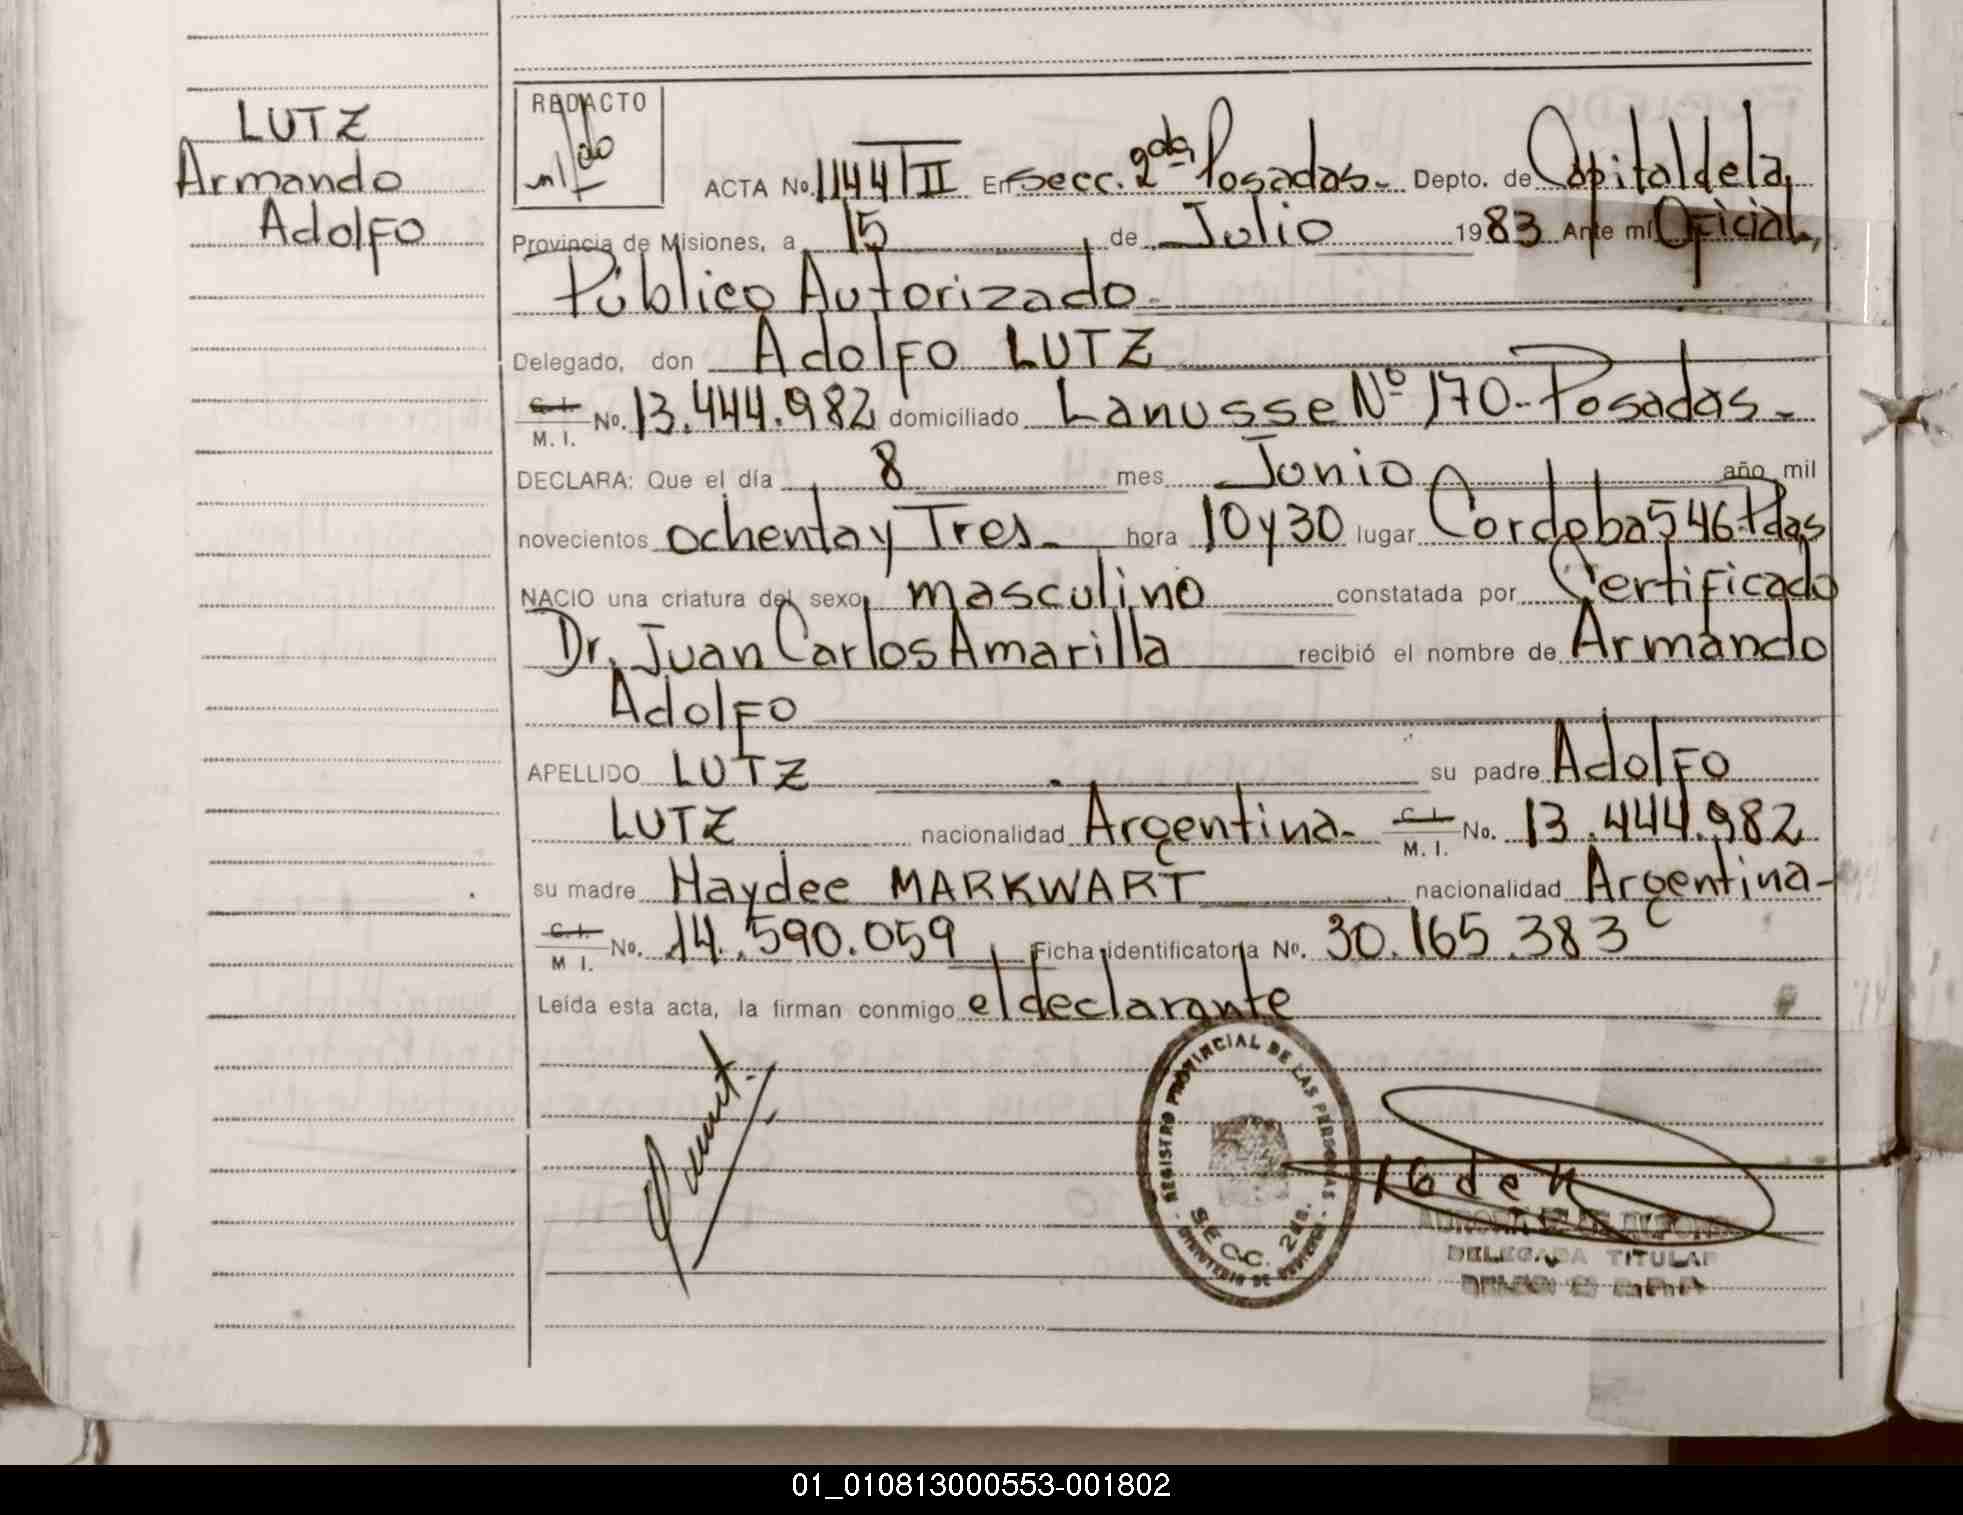 LUTZ
Armando
Adolfo
REDACTO
ACTA No. 1144/II En secc. 2da Posadas.- Depto. de Capital de la
Provincia de Misiones, a 15 de Julio 1983 Ante mí Oficial,
Público Autorizado.-
Delegado, don Adolfo LUTZ
C. I. M. I. No. 13.444.982 domiciliado Lanusse Nº 170-Posadas.-
DECLARA: Que el día 8 mes Junio año mil
novecientos ochenta y Tres.- hora 10 y 30 lugar Cordoba 546-Pdas
NACIO una criatura del sexo masculino constatada por Certificado
Dr. Juan Carlos Amarilla recibió el nombre de Armando
Adolfo
APELLIDO LUTZ su padre Adolfo
LUTZ nacionalidad Argentina.- C. I. M. I. No. 13.444.982
su madre Haydee MARKWART nacionalidad Argentina-
C. I. M I. No. 14.590.059 Ficha identificatoria No. 30.165.383
Leída esta acta, la firman conmigo el declarante
REGISTRO PROVINCIAL DE LAS PERSONAS
SECC. 2da.
MINISTERIO DE
DELEGADA TITULAR
01_010813000553-001802